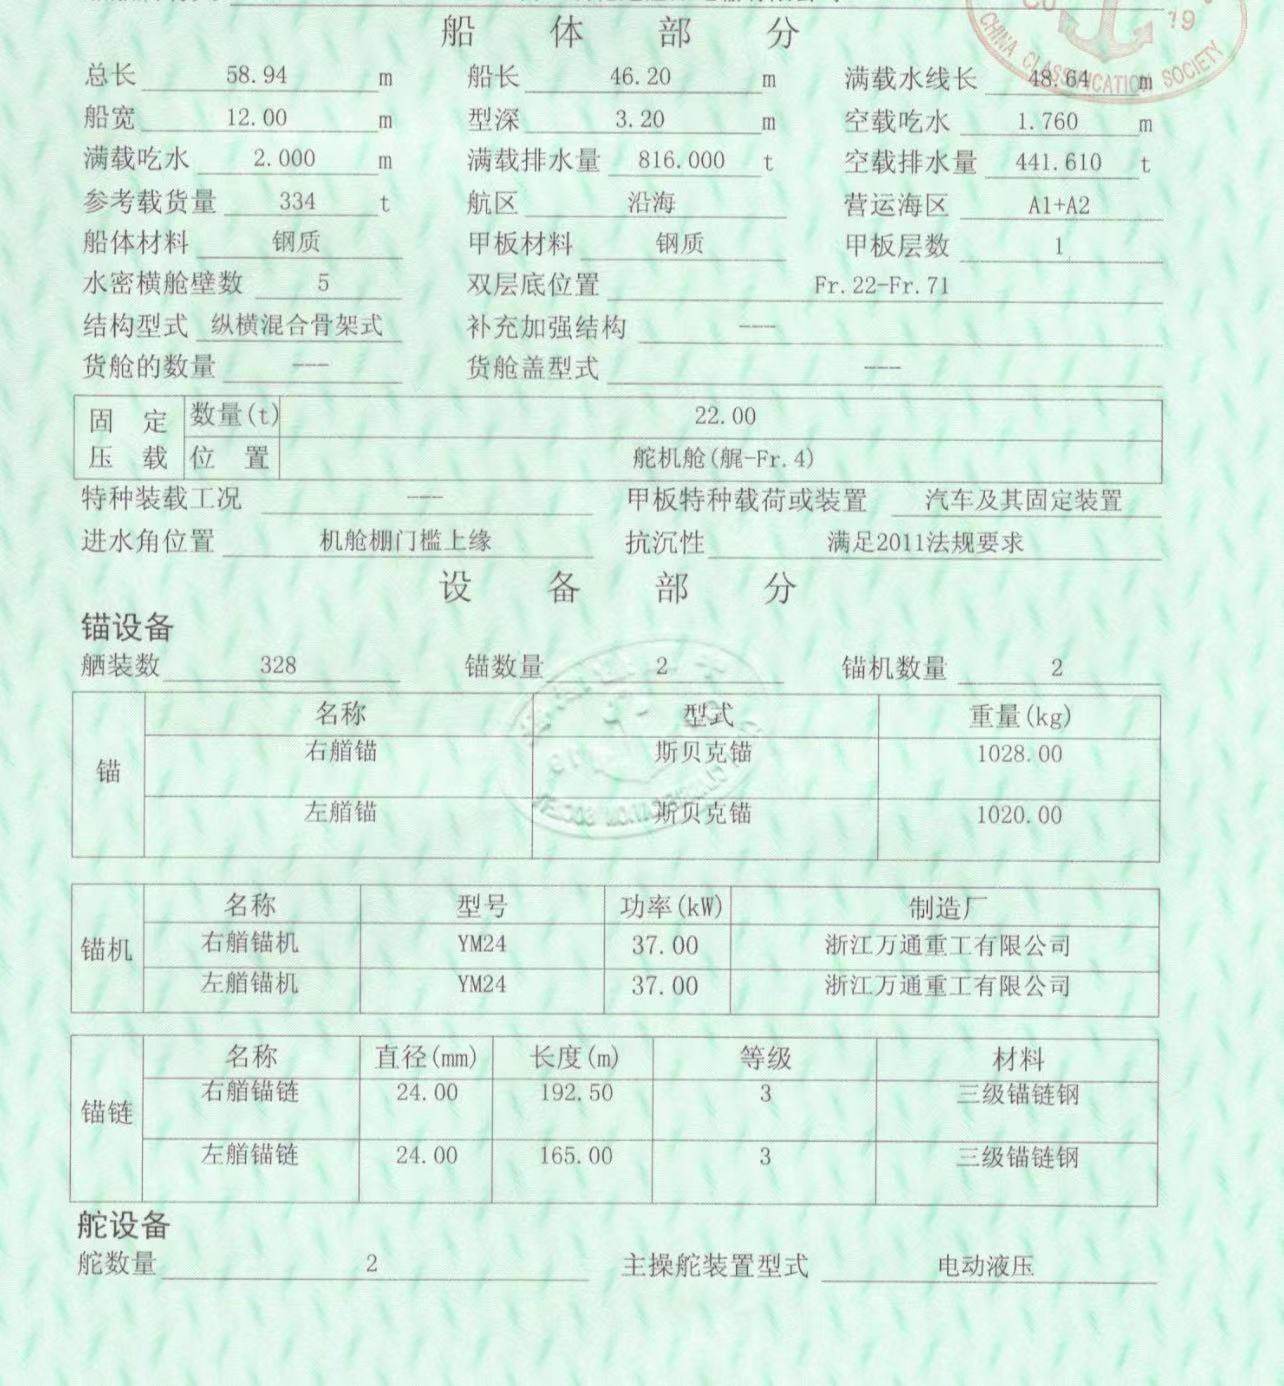 船 体 部 分
总长 58.94 m 船长 46.20 m 满载水线长 48.64 m
船宽 12.00 m 型深 3.20 m 空载吃水 1.760 m
满载吃水 2.000 m 满载排水量 816.000 t 空载排水量 441.610 t
参考载货量 334 t 航区 沿海 营运海区 A1+A2
船体材料 钢质 甲板材料 钢质 甲板层数 1
水密横舱壁数 5 双层底位置 Fr.22-Fr.71
结构型式 纵横混合骨架式 补充加强结构 ---
货舱的数量 --- 货舱盖型式 ---
固 定 数量(t) 22.00
压 载 位 置 舵机舱(艉-Fr.4)
特种装载工况 --- 甲板特种载荷或装置 汽车及其固定装置
进水角位置 机舱棚门槛上缘 抗沉性 满足2011法规要求
设 备 部 分
锚设备
舾装数 328 锚数量 2 锚机数量 2
名称 型式 重量(kg)
右艏锚 斯贝克锚 1028.00
锚
左艏锚 斯贝克锚 1020.00
名称 型号 功率(kW) 制造厂
锚机 右艏锚机 YM24 37.00 浙江万通重工有限公司
左艏锚机 YM24 37.00 浙江万通重工有限公司
名称 直径(mm) 长度(m) 等级 材料
右艏锚链 24.00 192.50 3 三级锚链钢
锚链
左艏锚链 24.00 165.00 3 三级锚链钢
舵设备
舵数量 2 主操舵装置型式 电动液压
CHINA CLASSIFICATION SOCIETY
19